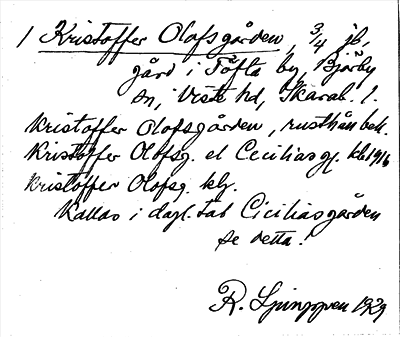 1 Kristoffer Olofsgården, 3/4 jb,
gård i Töfta by, Bjärby
sn, Viste hd, Skarab. l.
Kristoffer Olofsgården, rusthåll bek.
Kristoffer Olofsg. el Ceciliasg. kb 1916
Kristoffer Olofsg. klg.
Kallas i dagl. tal Ciciliasgården
se detta!
R. Ljunggren 1929